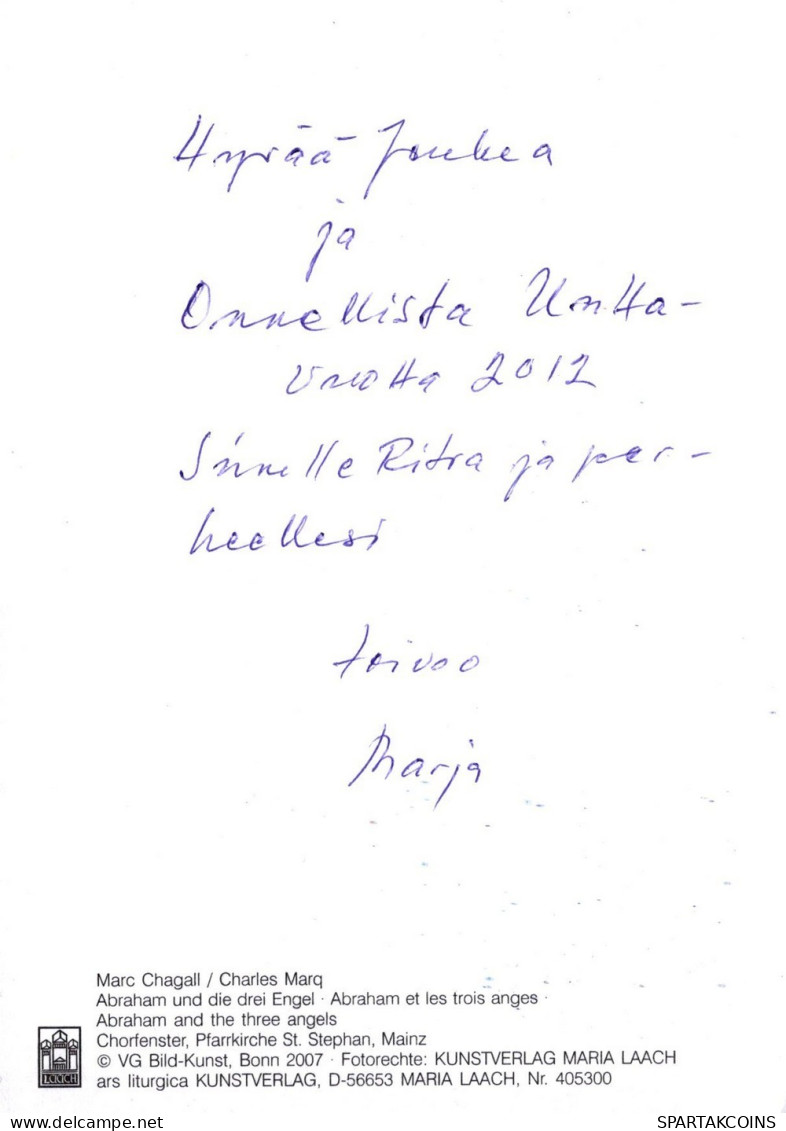 Hyvää Joulua
ja
Onnellista Uutta-
vuotta 2012
Sinulle Ritva ja per-
heellesi
toivoo
Marja
Marc Chagall / Charles Marq
Abraham und die drei Engel · Abraham et les trois anges ·
Abraham and the three angels
Chorfenster, Pfarrkirche St. Stephan, Mainz
© VG Bild-Kunst, Bonn 2007 · Fotorechte: KUNSTVERLAG MARIA LAACH
ars liturgica KUNSTVERLAG, D-56653 MARIA LAACH, Nr. 405300
LAACH
delcampe.net
SPARTAKCOINS